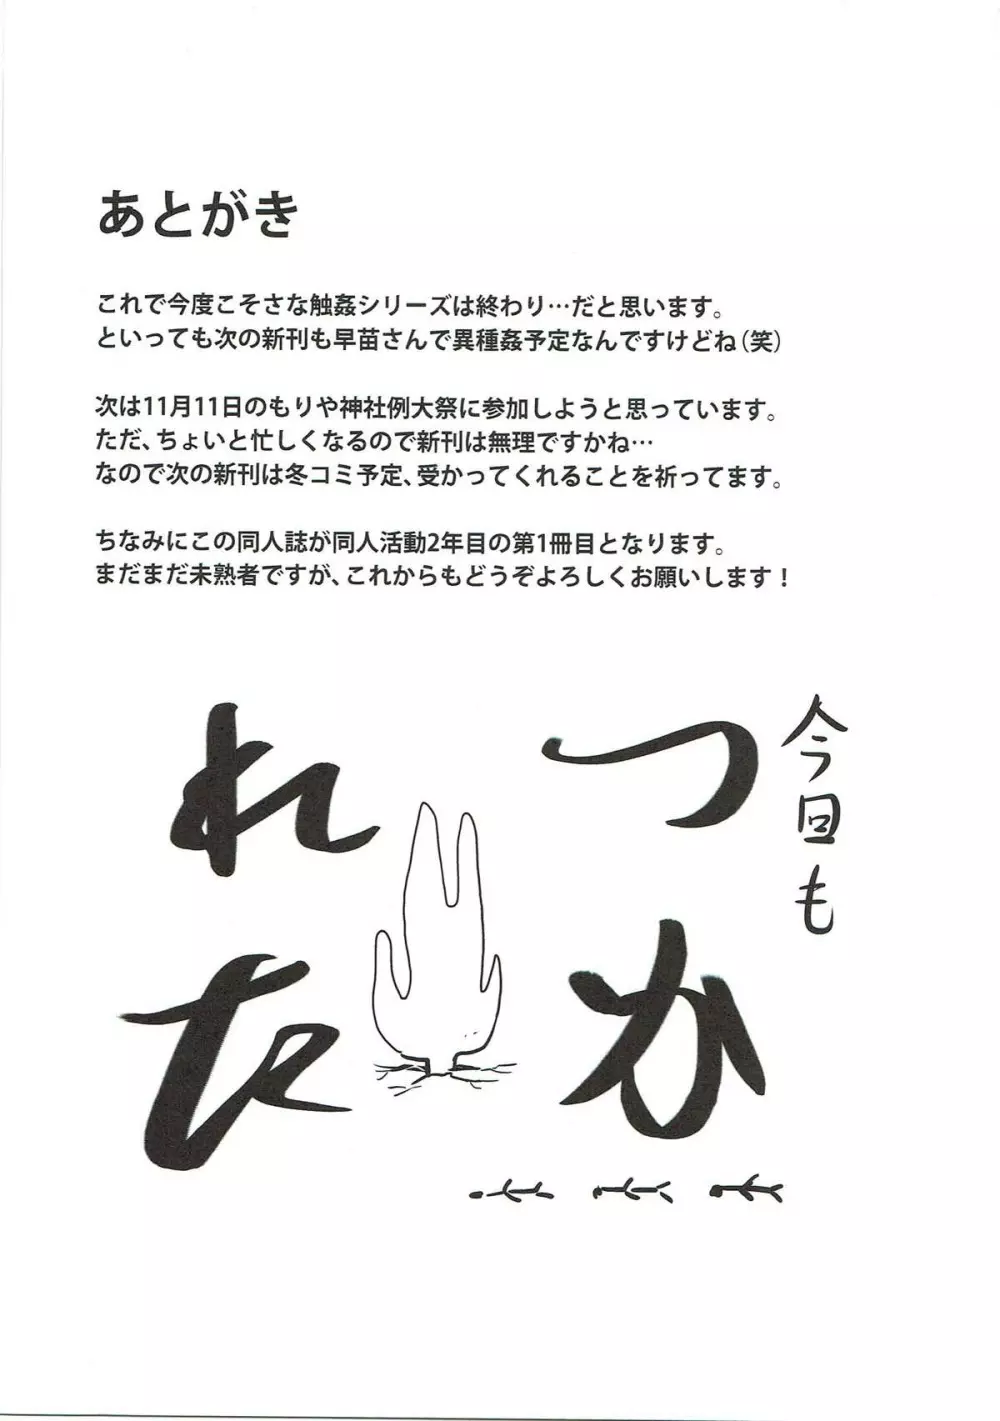 あとがき
これで今度こそさな触姦シリーズは終わり…だと思います。
といっても次の新刊も早苗さんで異種姦予定なんですけどね（笑）
次は11月11日のもりや神社例大祭に参加しようと思っています。
ただ、ちょいと忙しくなるので新刊は無理ですかね…
なので次の新刊は冬コミ予定、受かってくれることを祈ってます。
ちなみにこの同人誌が同人活動2年目の第1冊目となります。
まだまだ未熟者ですが、これからもどうぞよろしくお願いします！
今回も
つか
れた